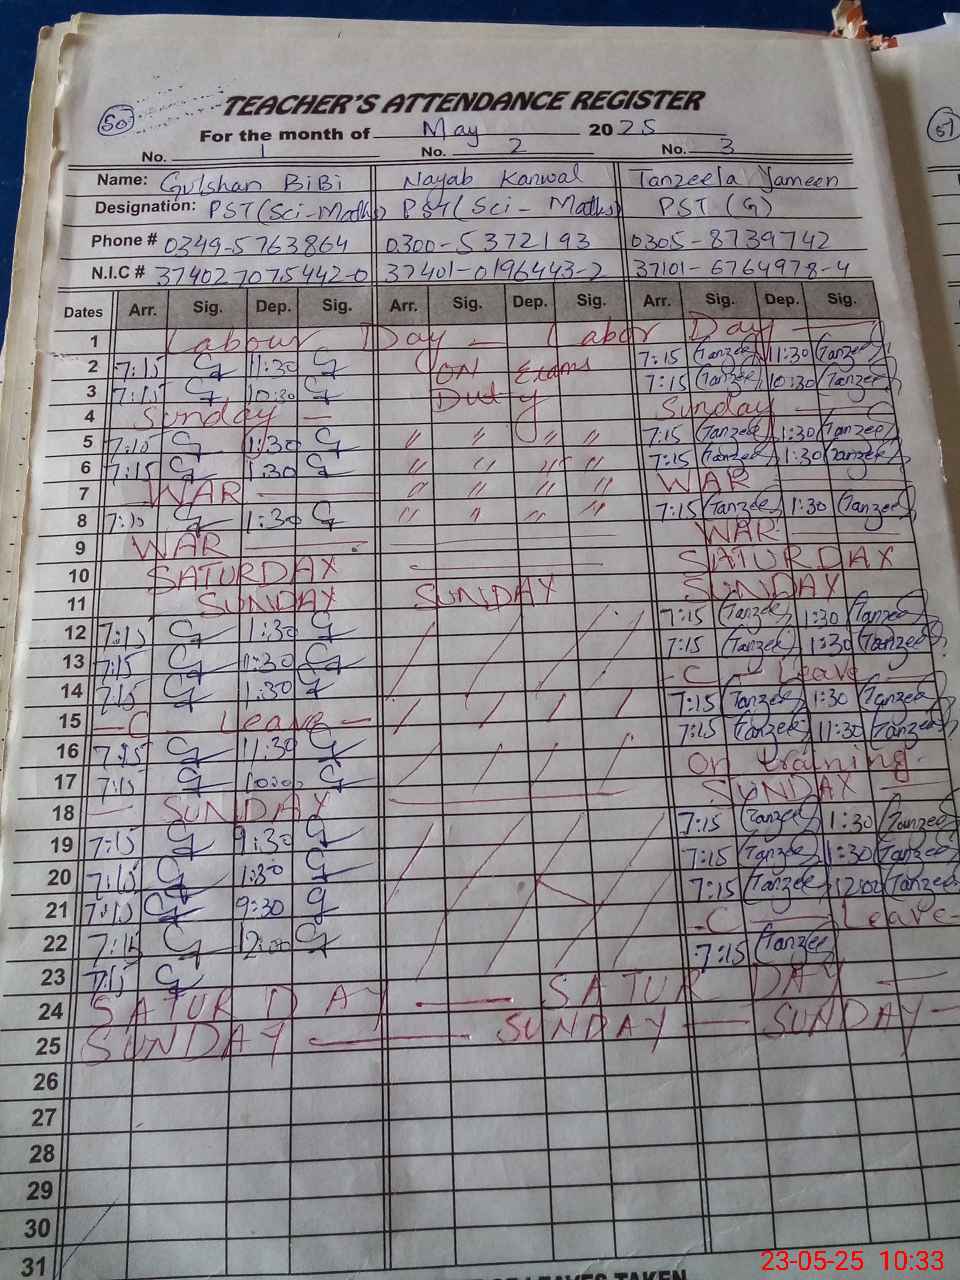 50
TEACHER'S ATTENDANCE REGISTER
For the month of May 2025
No. 1 No. 2 No. 3
Name: Gulshan BiBi Nayab Kanwal Tanzeela Yameen
Designation: PST(Sci-Maths) PST(Sci-Maths) PST (G)
Phone # 0349-5763864 0300-5372193 0305-8739742
N.I.C # 37402 7075442-0 37401-0196443-2 37101-6764978-4
Dates Arr. Sig. Dep. Sig. Arr. Sig. Dep. Sig. Arr. Sig. Dep. Sig.
1 Labour Day - Labor Day
2 7:15 G 11:30 G ON Exams 7:15 Tanzeel 11:30 Tanzeel
3 7:15 G 10:30 G Duty 7:15 Tanzeel 10:30 Tanzeel
4 Sunday - Sunday
5 7:15 G 1:30 G " " " " 7:15 Tanzeel 1:30 Tanzeel
6 7:15 G 1:30 G " " " " 7:15 Tanzeel 1:30 Tanzeel
7 WAR " " " " WAR
8 7:15 G 1:30 G " " " " 7:15 Tanzeel 1:30 Tanzeel
9 WAR WAR
10 SATURDAY SATURDAY
11 SUNDAY SUNDAY SUNDAY
12 7:15 G 1:30 G 7:15 Tanzeel 1:30 Tanzeel
13 7:15 G 1:30 G 7:15 Tanzeel 1:30 Tanzeel
14 7:15 G 1:30 G - C - Leave
15 - C Leave - 7:15 Tanzeel 1:30 Tanzeel
16 7:15 G 11:30 G 7:15 Tanzeel 11:30 Tanzeel
17 7:15 G G On training
18 - SUNDAY SUNDAY
19 7:15 G 9:30 G 7:15 Tanzeel 1:30 Tanzeel
20 7:15 G 1:30 G 7:15 Tanzeel 1:30 Tanzeel
21 7:15 G 9:30 G 7:15 Tanzeel 12:00 Tanzeel
22 7:15 G 12:00 G - C - Leave -
23 7:15 G 7:15 Tanzeel
24 SATURDAY - SATURDAY -
25 SUNDAY - SUNDAY - SUNDAY -
26
27
28
29
30
31
51
LEAVES TAKEN
23-05-25 10:33